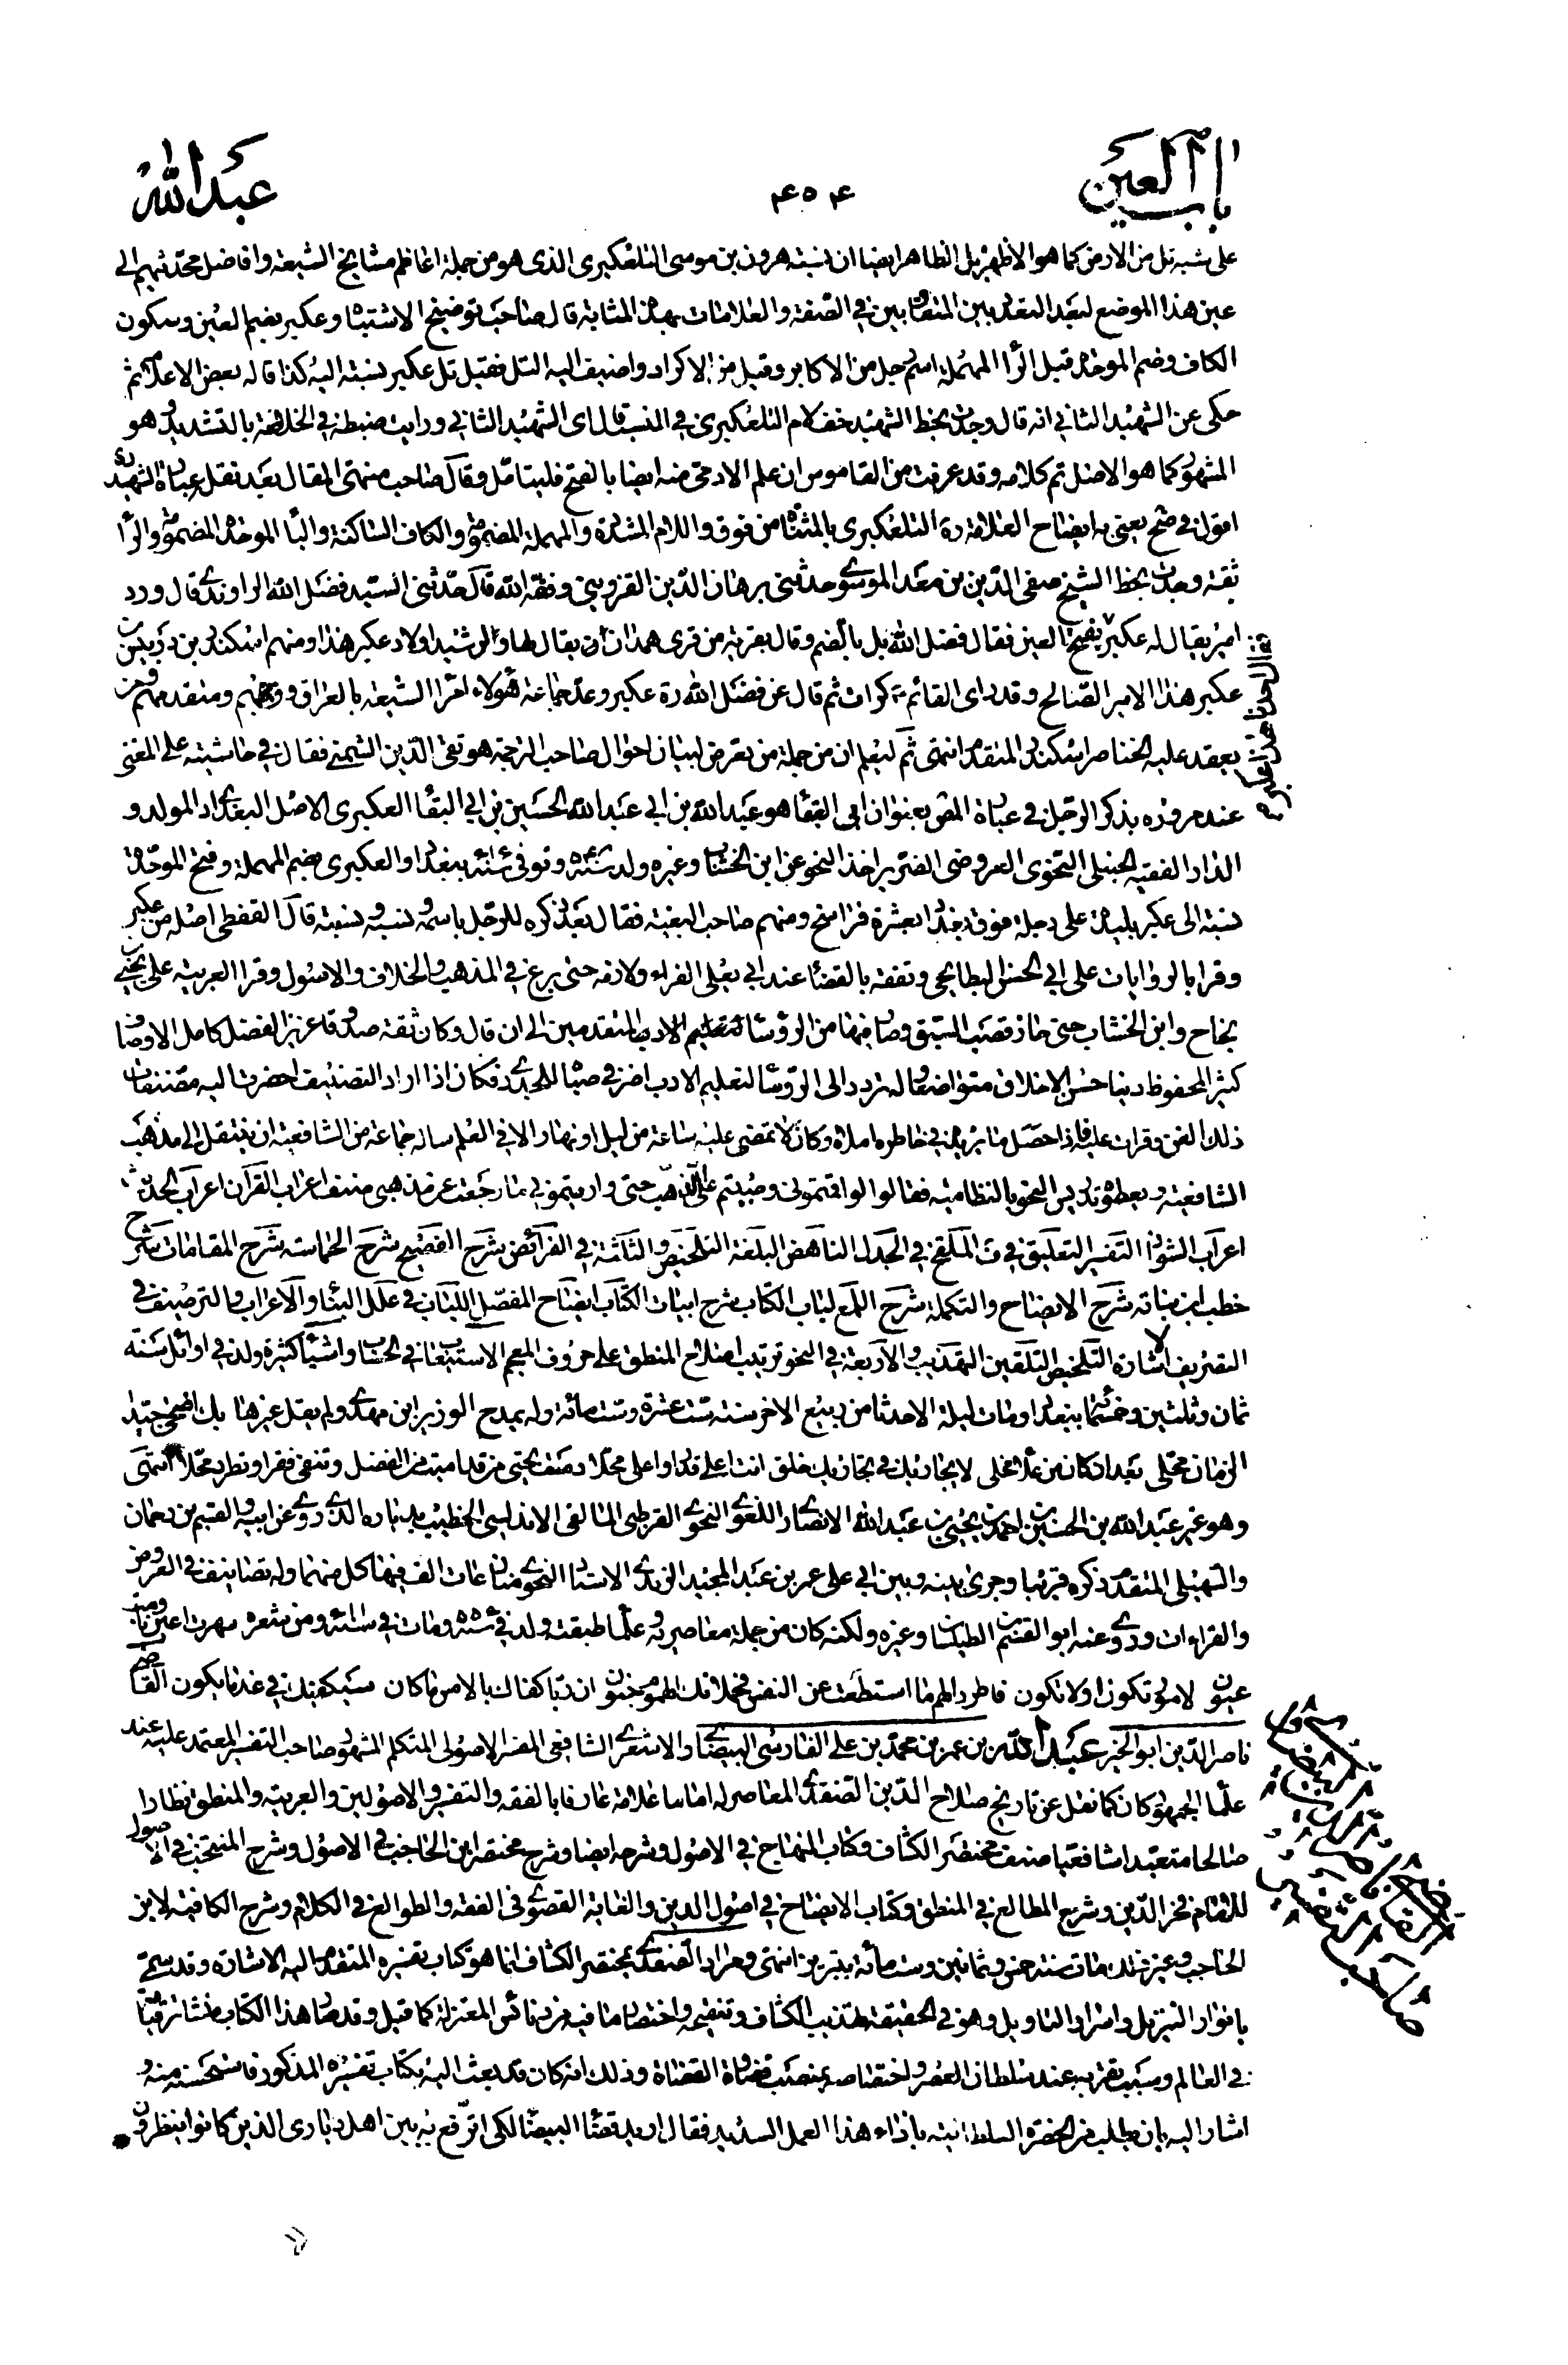 باب العين
٤٥٤
عبد الله
على شبه تل من الارض كما هو الاظهر بل الظاهر ايضا ان نسبة هرون بن موسى التلعكبرى الذى هو من جملة اعاظم مشايخ الشيعة وافاضل محدثيهم الى
عين هذا الموضع لبعد التعدد بين المتقابين في الصفة والعلامات بهذه المثابة قال صاحب توضيح الاشتباه وعكبر بضم العين وسكون
الكاف وضم الموحدة قبل الراء المهملة اسم رجل من الاكابر وقيل من الاكراد واضيف اليه التل فقيل تل عكبر نسبته اليه كذا قاله بعض الاعلام ثم
حكى عن الشهيد الثاني انه قال وجدت بخط الشهيد خفف لام التلعكبرى في النسب قال اى الشهيد الثاني ورايت ضبطه في الخلاصة بالتشديد وهو
المشهور كما هو الاصل تم كلامه وقد عرفت من القاموس ان علم الادمى منه ايضا بالفتح فليتامل وقال صاحب منتهى المقال بعد نقل عبارة الشهيد
اقول في ضح يعنى به ايضاح العلامة ره التلعكبرى بالمثناة من فوق واللام المشددة والمهملة المضمومة والكاف الساكنة والباء الموحدة المضمومة والراء
ثقة وجدت بخط الشيخ صفى الدين بن معد الموسوى حدثنى برهان الدين القزوينى وفقه الله قال حدثنى السيد فضل الله الراوندى قال ورد
امير يقال له عكبر بفتح العين فقال فضل الله بل بالضم وقال بقرية من قرى همدان يقال لها ورشيد اولاد عكبر هذا ومنهم اسكندر بن دربيس بن
عكبر هذا الامير الصالح وقد راى القائم ع كرات ثم قال عن فضل الله ره عكبر وعد جماعة هؤلاء امراء الشيعة بالعراق ووجههم ومتقدمهم ومن
يعقد عليه الخناصر اسكندر المتقدم انتهى ثم ليعلم ان من جملة من تعرض لبيان احوال صاحب الترجمة هو تقى الدين الشمنى فقال في حاشيته على المغنى
عند مروره بذكر الرجل في عبارة المص بعنوان ابى البقاء هو عبد الله بن ابى عبد الله الحسين بن ابى البقاء العكبرى الاصل البغدادى المولد و
الدار الفقيه الحنبلى النحوى العروضى الضرير اخذ النحو عن ابن الخشاب وغيره ولد سنة وتوفى سنة ببغداد والعكبرى بضم المهملة وفتح الموحدة
نسبة الى عكبر بليدة على دجلة فوق بغداد بعشرة فراسخ ومنهم صاحب البغية فقال بعد ذكره للرجل باسمه ونسبه ونسبته قال القفطى اصله من عكبر
وقرا بالروايات على ابى الحسن البطايحى وتفقه بالقضاء عند ابى يعلى الفراء ولازمه حتى برع في المذهب والخلاف والاصول وقرا العربية على يحيى بن
نجاح وابن الخشاب حتى حاز قصب السبق وصار فيها من الرؤساء المتقدمين الى ان قال وكان ثقة صدوقا عزيز الفضل كامل الاوصاف
كثير المحفوظ دينا حسن الاخلاق متواضعا وله تردد الى الرؤساء لتعليم الادب اضر في صباه بالجدرى فكان اذا اراد التصنيف احضرت اليه مصنفات
ذلك الفن وقرات عليه فاذا حصل ما يريده في خاطره املاه وكان لا تمضى عليه ساعة من ليل او نهار الا في العلم ساله جماعة من الشافعية ان ينتقل الى مذهب
الشافعية ويعطوه تدريس النحو بالنظامية فقال لو اقمتمونى وصببتم على الذهب حتى واريتمونى ما رجعت عن مذهبى صنف اعراب القرآن اعراب الحديث
اعراب الشواذ التفسير التعليق في الملقح في الجدل الناهض البلغة التلخيص والثلاثة في الفرائض شرح الفصيح شرح الحماسة شرح المقامات شرح
خطب ابن نباته شرح الايضاح والتكملة شرح اللمع لباب الكتاب شرح ابيات الكتاب ايضاح المفصل اللباب في علل البناء والاعراب الترصيف في
التصريف الاشارة التلخيص التلقين التهذيب والاربعة في النحو ترتيب اصلاح المنطق على حروف المعجم الاستيعاب في الحساب واشياء كثيرة ولد في اوائل سنة
ثمان وثلثين وخمسمائة ببغداد ومات ليلة الاحد ثامن ربيع الاخر سنة ست عشرة وستمائة وله يمدح الوزير ابن مهدى ولم يقل غيرها بك اضحى جيد
الزمان محلى بعد ان كان من علاه مخلى لا يجاريك في نجاريك خلق انت اعلى قدرا واعلى محلا دمت تحيى ما قد اميت من الفضل وتنفى فقرا وتطرد محلا انتهى
وهو غير عبد الله بن الحسين بن احمد بن يحيى بن عبد الله الانصارى اللغوى النحوى القرطبى المالقى الاندلسى الخطيب بدياره الذى روى عن ابيه والقسم بن دحمان
والسهيلى المتقدم ذكره قريبا وجرى بينه وبين ابى على عمر بن عبد المجيد الزندى الاستاد النحوى منازعات الف فيها كل منهما وله تصانيف في العروض
والقراءات وروى عنه ابو القسم بن الطيلسان وغيره ولكنه كان من جملة معاصريه وعلماء طبقته ولد في سنة ومات في سنة ومن شعره سهرت اعين ونامت
عيون لامور تكون او لا تكون فاطرد الهم ما استطعت عن النفس فحملانك الهموم جنون ان ربا كفاك بالامس ما كان سيكفيك في غد ما يكون القاضى
ناصر الدين ابو الخير عبد الله بن عمر بن محمد بن على الفارسى البيضاوى الاشعرى الشافعى المفسر الاصولى المتكلم المشهور صاحب التفسير المعتمد عليه عند
علماء الجمهور كان كما نقل عن تاريخ صلاح الدين الصفدى المعاصر له اماما علامة عارفا بالفقه والتفسير والاصولين والعربية والمنطق نظارا
صالحا متعبدا شافعيا صنف مختصر الكشاف وكتاب المنهاج في الاصول وشرحه ايضا وشرح مختصر ابن الحاجب في الاصول وشرح المنتخب في الاصول
للامام فخر الدين وشرح المطالع في المنطق وكتاب الايضاح في اصول الدين والغاية القصوى في الفقه والطوالع في الكلام وشرح الكافية لابن
الحاجب وغير ذلك مات سنة خمس وثمانين وستمائة بتبريز انتهى ومراد الصفدى بمختصر الكشاف انما هو كتاب تفسيره المتقدم اليه الاشارة وقد سمى
بانوار التنزيل واسرار التاويل وهو في الحقيقة تهذيب الكشاف وتنقيحه واختصار ما فيه من نفائس المعتزلة كما قيل وقد صار هذا الكتاب منشا ترقيا
في العالم وسبب تقربه عند سلطان العصر واختصاصه بمنصب قضاء القضاة وذلك انه كان قد بعث اليه بكتاب تفسيره المذكور فاستحسنه منه و
اشار اليه بان يطلب من الحضرة السلطانية بازاء هذا العمل السديد فقال اريد قضاء البيضاء لكى اترفع به بين اهل ديارى الذين كانوا ينظرون